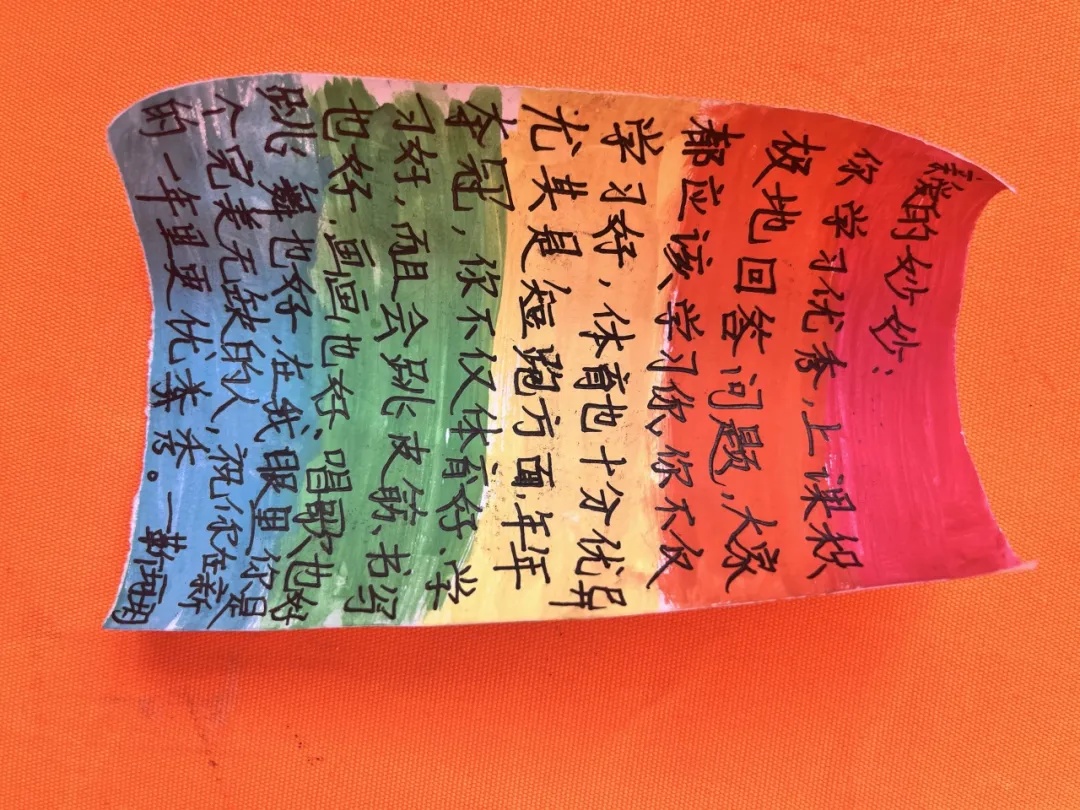 亲爱的妙妙:
你学习优秀,上课积
极地回答问题,大家
都应该学习你、你不仅
学习好,体育也十分优异
尤其是短跑方面,年年
夺冠,你不仅体育好、学
习好,而且会跳皮筋、书写
也好、画画也好、唱歌也好
跳舞也好、在我眼里你是
个完美无缺的人,祝你在新
的一年里更优秀。—靳